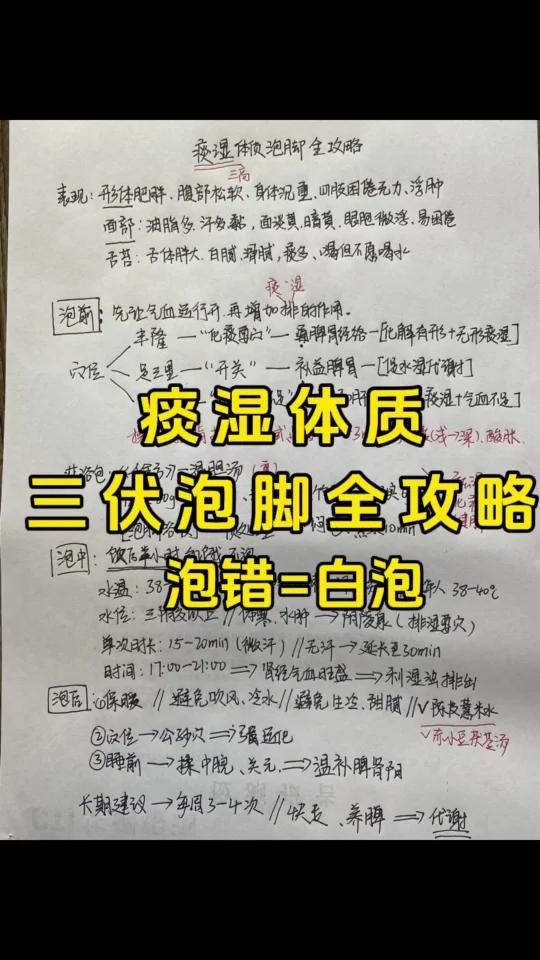 痰湿体质泡脚全攻略
三高
表现：形体肥胖、腹部松软、身体沉重、四肢困倦无力、浮肿
面部：油脂多、汗多黏，面淡黄、暗黄、眼胞微浮、易困倦
舌苔：舌体胖大、白腻、滑腻，痰多、渴但不愿喝水
痰·湿
泡前：先让气血运行开，再增加排的作用。
丰隆—“化痰要穴”—脾胃经络—[化解有形+无形痰湿]
穴位
足三里—“开关”—补益脾胃—[促水湿代谢]
痰湿+气血不足]
酸胀
痰湿体质
三伏泡脚全攻略
泡错=白泡
温胆汤
泡中：饭后半小时
水温：38-
38-40℃
水位：三阴交以上//体寒、水肿→阴陵泉（排湿要穴）
单次时长：15-20min（微汗）//无汗→延长至30min
时间：17:00-21:00⇒肾经气血旺盛⇒利湿浊排出
泡后：①保暖//避免吹风、冷水//避免生冷、甜腻//√陈皮薏米水
√赤小豆茯苓汤
②穴位→公孙穴⇒强运化
③睡前→揉中脘、关元⇒温补脾肾阳
长期建议→每周3-4次//快走、养脾⇒代谢